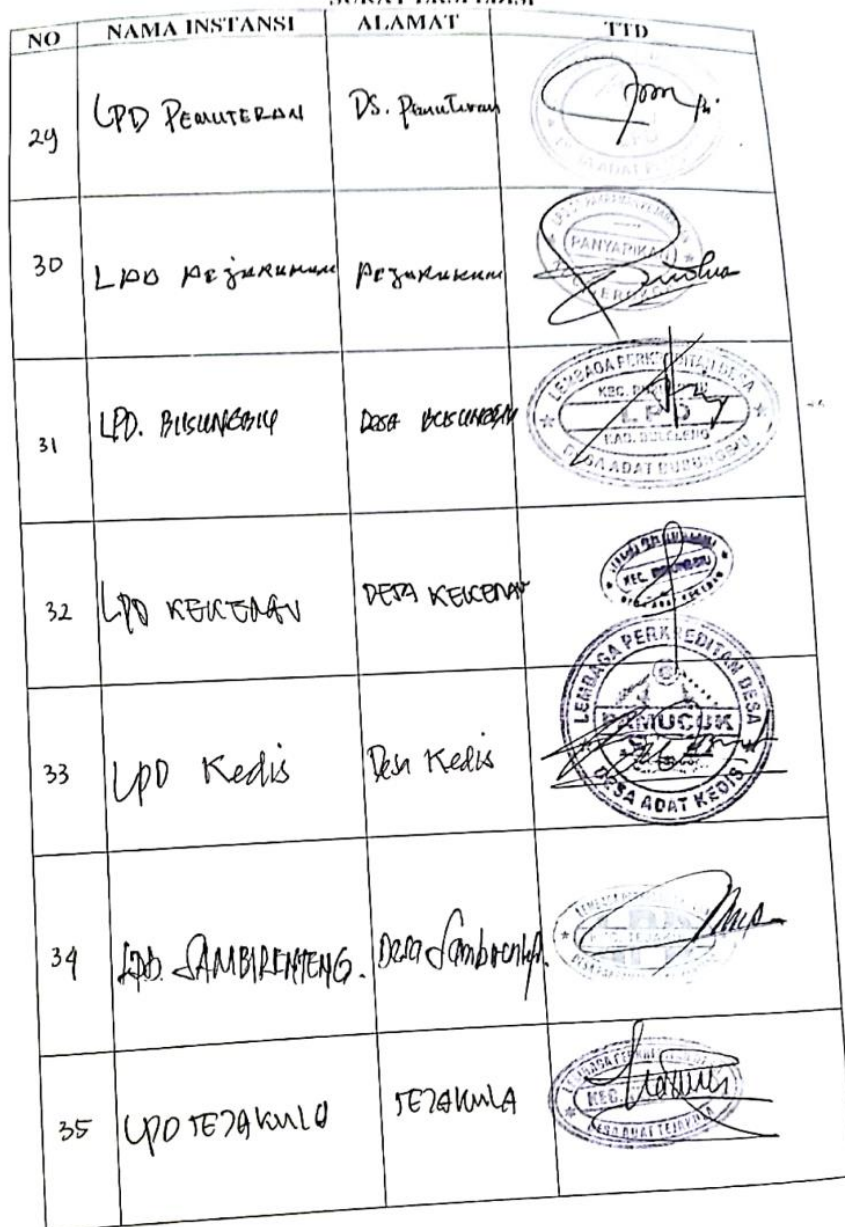 SURAT EKSPEDISI
NO NAMA INSTANSI ALAMAT TTD
29 LPD PEMUTERAN DS. Pemuteran
30 LPD Pejarakan Pejarakan
PANYARIKAN
31 LPD. BUSUNGBIU Desa BUSUNGBIU
LEMBAGA PERKREDITAN DESA
KEC. BUSUNGBIU
LPD
KAB. BULELENG
DESA ADAT BUSUNGBIU
32 LPD KEKERAN DESA KEKERAN
33 LPD Kedis Desa Kedis
LEMBAGA PERKREDITAN DESA
PAMUCUK
DESA ADAT KEDIS
34 LPD. SAMBIRENTENG. Desa Sambirenteng.
35 LPD TEJAKULA TEJAKULA
DESA ADAT TEJAKULA